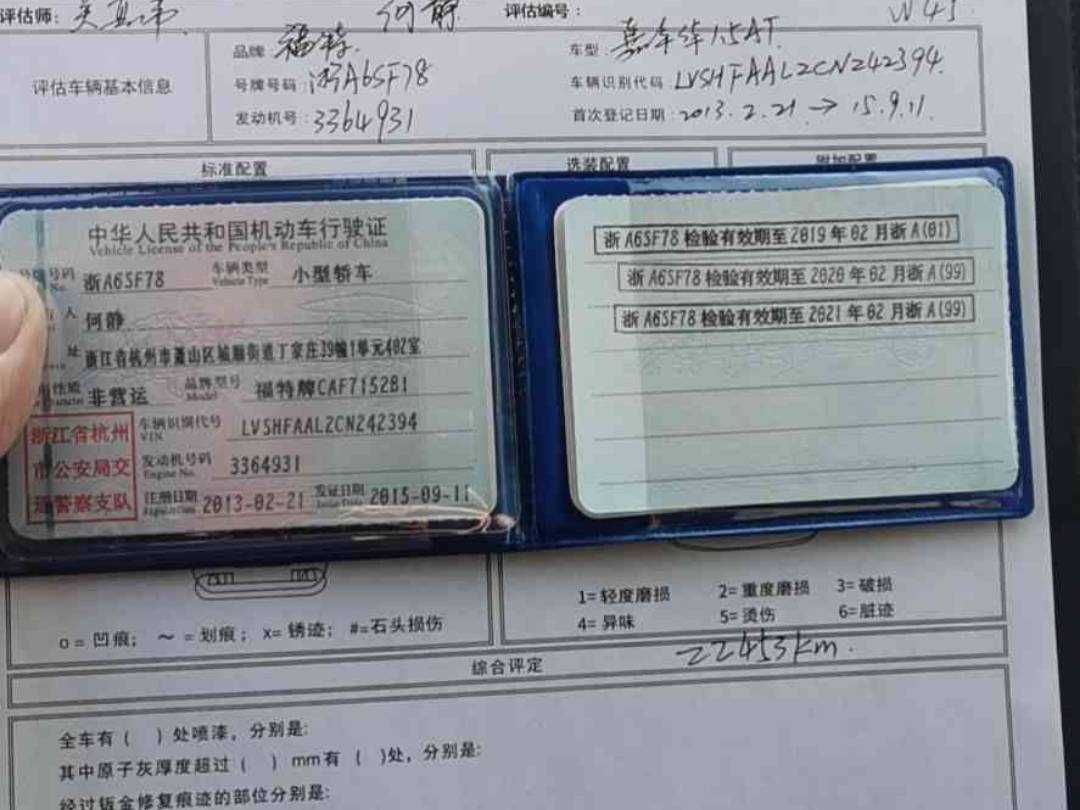 评估师:
何静
评估编号:
评估车辆基本信息
品牌:福特
车型:嘉年华1.5AT
号牌号码:浙A6SF78
车辆识别代码:LVSHFAAL2CN242394
发动机号:3364931
首次登记日期:2013.2.21→15.9.11
标准配置
选装配置
附加配置
中华人民共和国机动车行驶证
Vehicle License of the People's Republic of China
号牌号码 浙A6SF78 车辆类型 小型轿车
No. Vehicle Type
人 何静
址 浙江省杭州市萧山区城厢街道丁家庄39幢1单元402室
性质 非营运 品牌型号 福特牌CAF7152B1
Model
浙江省杭州
市公安局交
通警察支队
车辆识别代号 LVSHFAAL2CN242394
VIN
发动机号码 3364931
Engine No.
注册日期 2013-02-21 发证日期 2015-09-11
Issue Date
浙A6SF78检验有效期至2019年02月浙A(01)
浙A6SF78检验有效期至2020年02月浙A(99)
浙A6SF78检验有效期至2021年02月浙A(99)
o=凹痕; ~=划痕; x=锈迹; #=石头损伤
1=轻度磨损 2=重度磨损 3=破损
4=异味 5=烫伤 6=脏迹
综合评定
22453km.
全车有( )处喷漆,分别是:
其中原子灰厚度超过( )mm有( )处,分别是:
经过钣金修复痕迹的部位分别是: